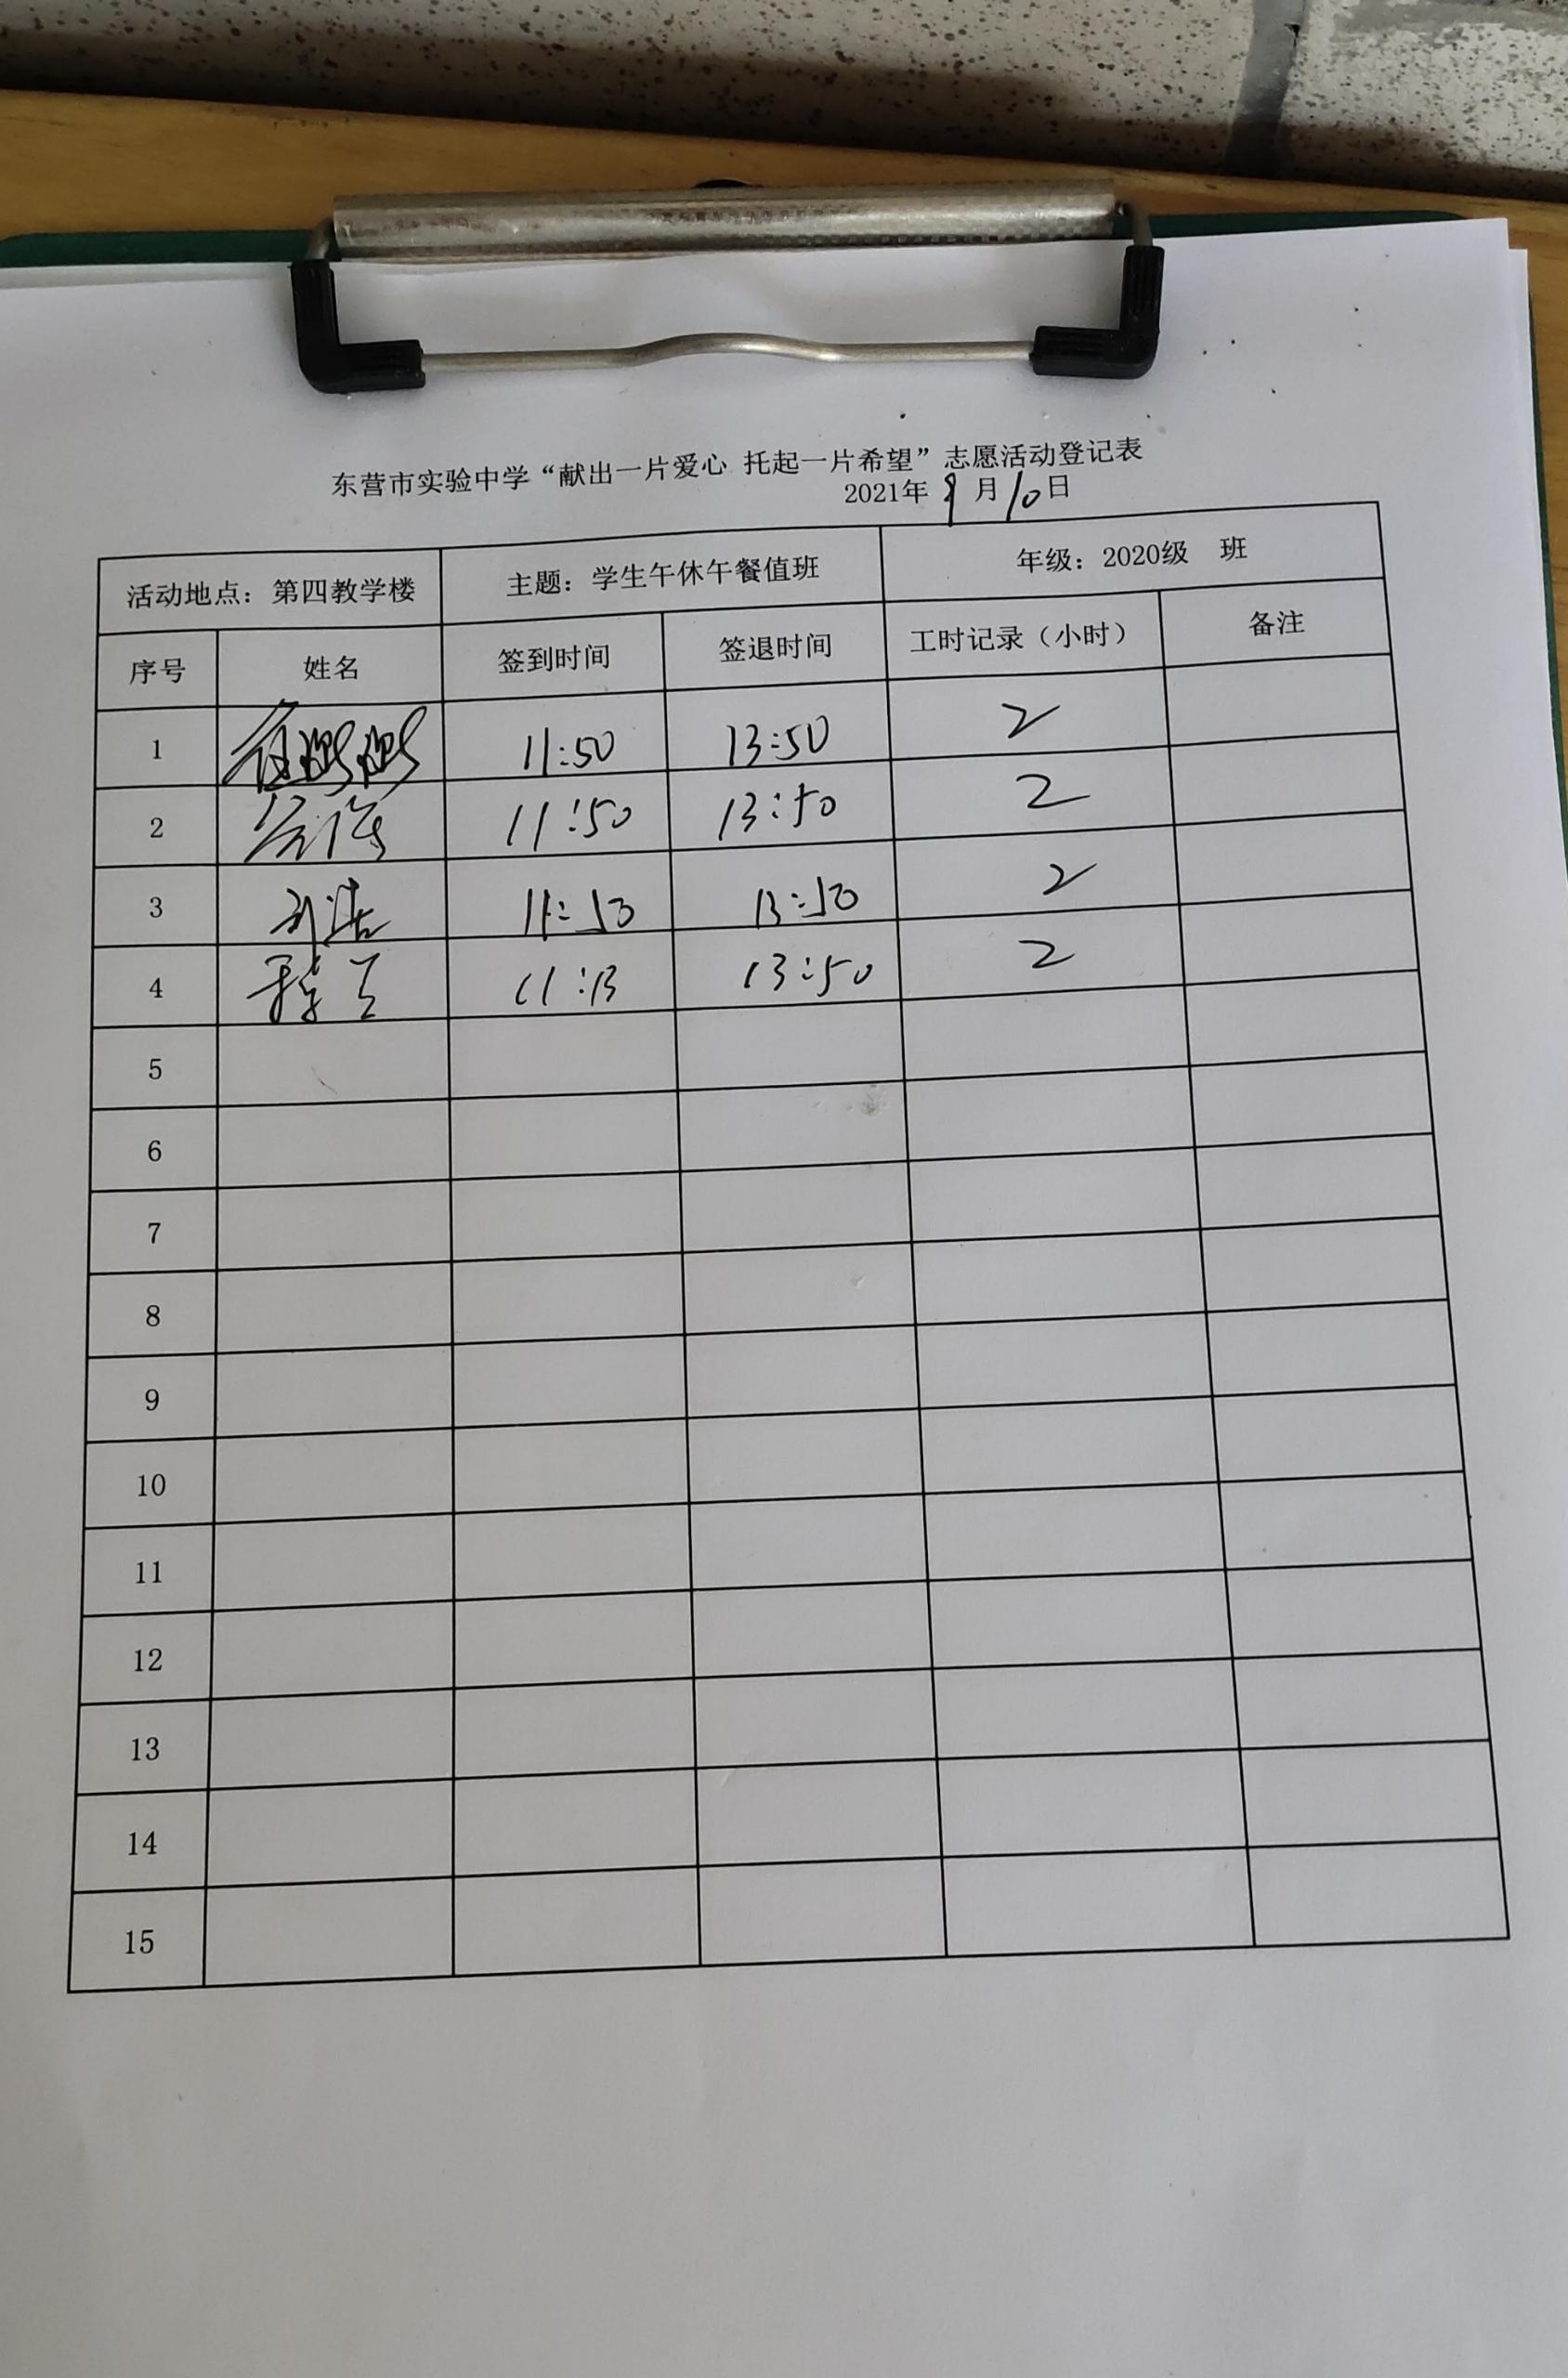 东营市实验中学“献出一片爱心 托起一片希望”志愿活动登记表
2021年9月10日
活动地点：第四教学楼 主题：学生午休午餐值班 年级：2020级 班
序号 姓名 签到时间 签退时间 工时记录（小时） 备注
1 11:50 13:50 2
2 11:50 13:50 2
3 11:50 13:50 2
4 11:13 13:50 2
5
6
7
8
9
10
11
12
13
14
15